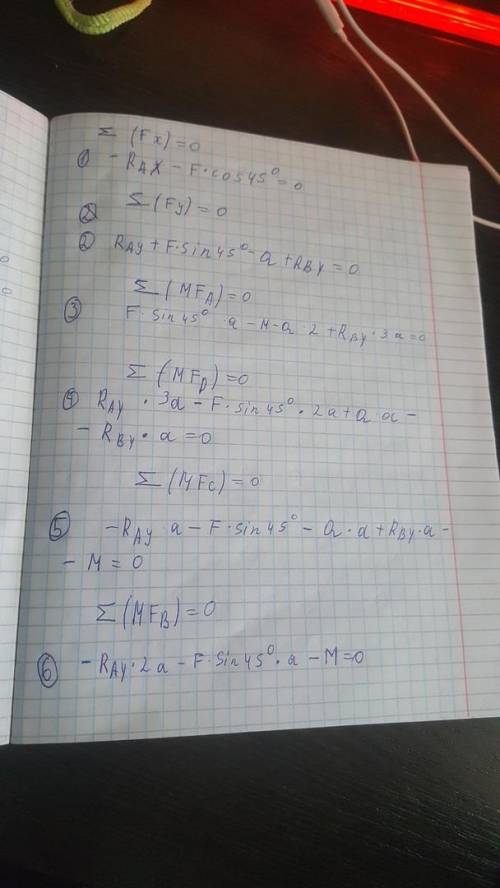 Σ (Fx)=0
① - RAX - F·cos45°=0
② Σ(Fy)=0
② RAy+F·sin45°-Q+RBy=0
Σ(MFA)=0
③ F·sin45°·a-M-Q·2+RBy·3a=0
Σ(MFD)=0
④ RAy·3a-F·sin45°·2a+Q·a-
- RBy·a=0
Σ(MFc)=0
⑤ -RAy a-F·sin45°-Q·a+RBy·a-
- M=0
Σ(MFB)=0
⑥ -RAy·2a-F·sin45°·a-M=0